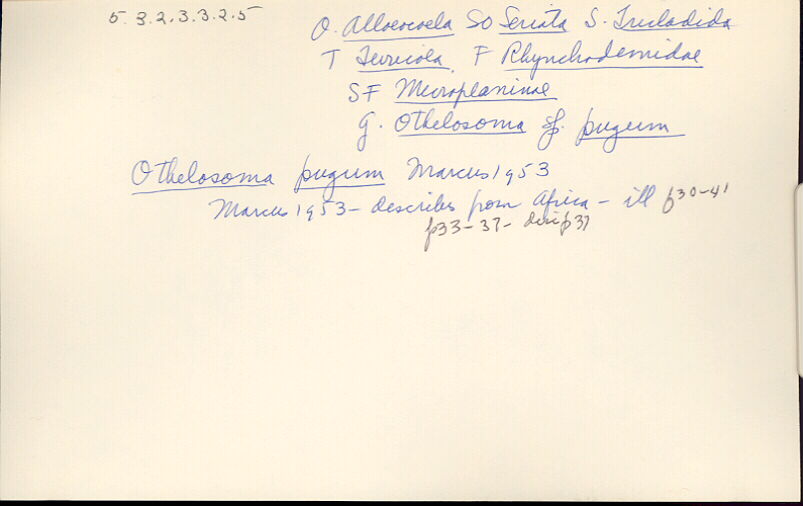 5. 3. 2. 3. 3. 2. 5
O. Alloeocoela SO Seriata S. Tricladida
T Terricola F Rhynchodemidae
SF Microplaninae
G. Othelosoma sp. pugum
Othelosoma pugum Marcus 1953
Marcus 1953 - describes from Africa - ill p30-41
p33-37-
p37